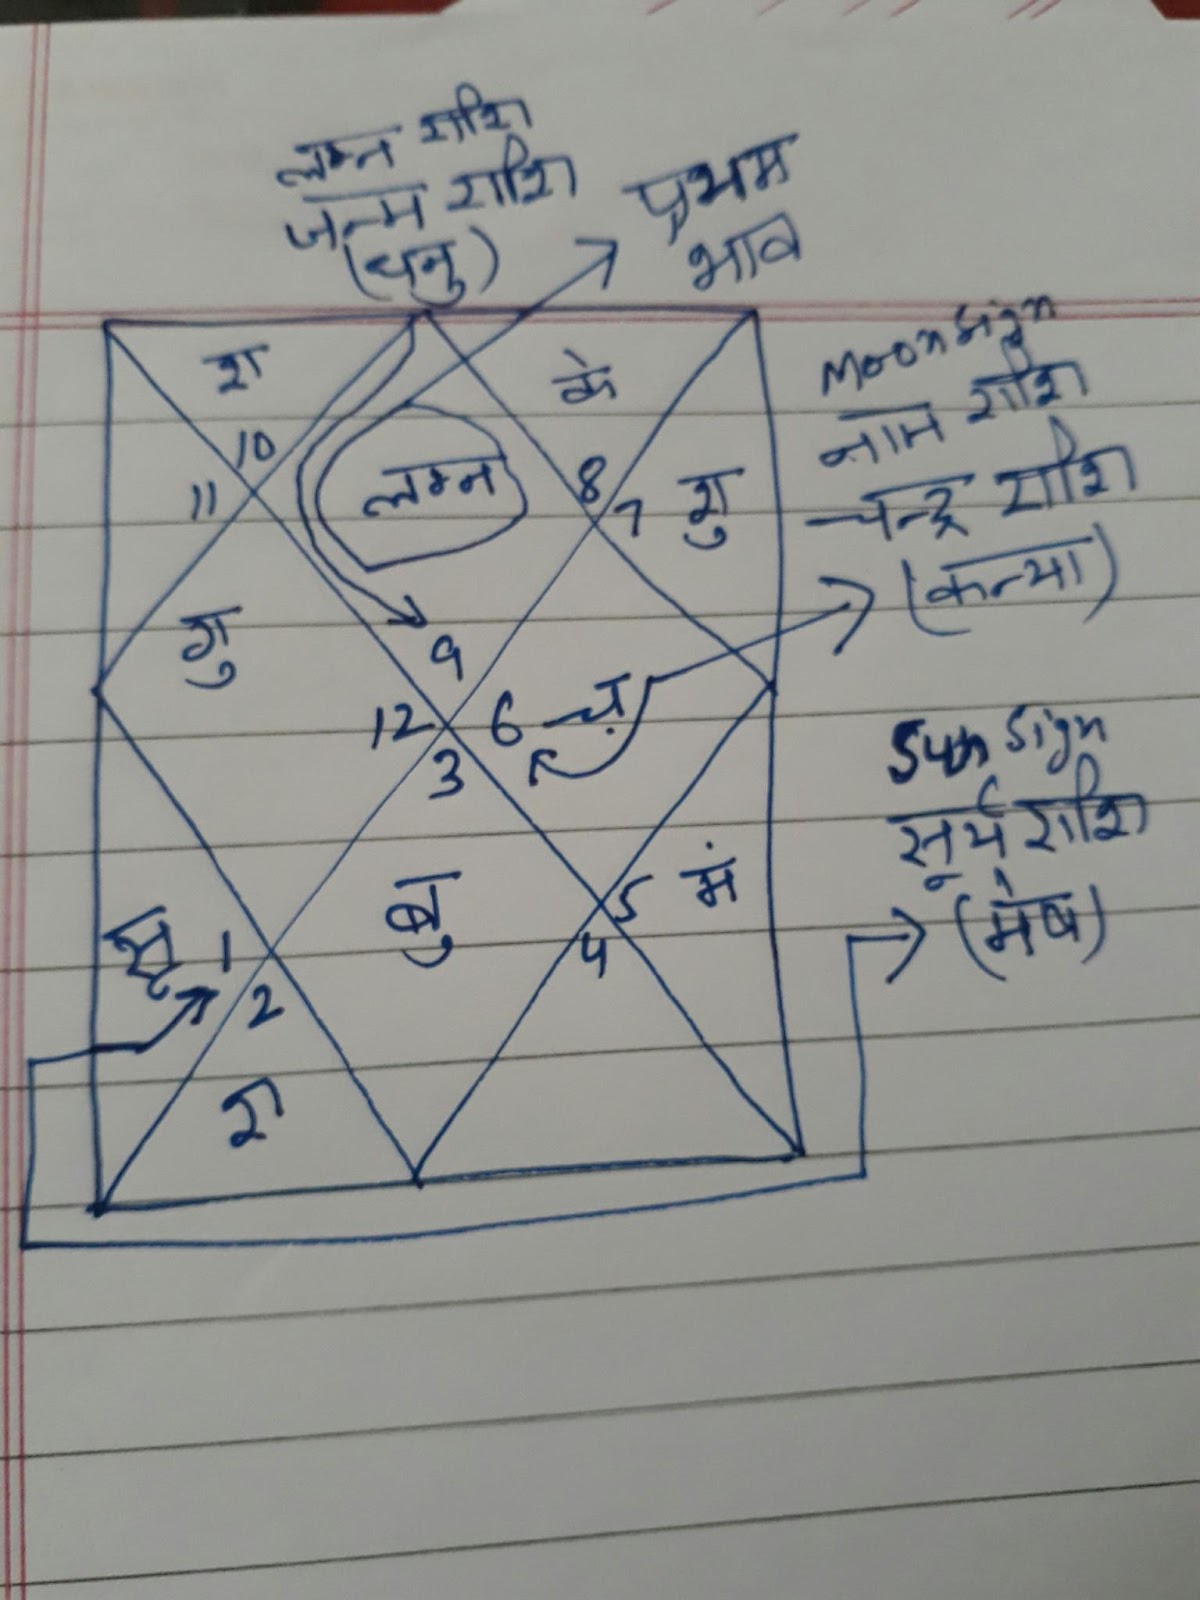 लग्न राशि
जन्म राशि
(धनु)
प्रथम
भाव
Moon Sign
नाम राशि
चन्द्र राशि
(कन्या)
Sun Sign
सूर्य राशि
(मेष)
श
के
10
लग्न
8
11
7
शु
गु
9
12
6
चं
3
बु
5
मं
सू
1
4
2
रा